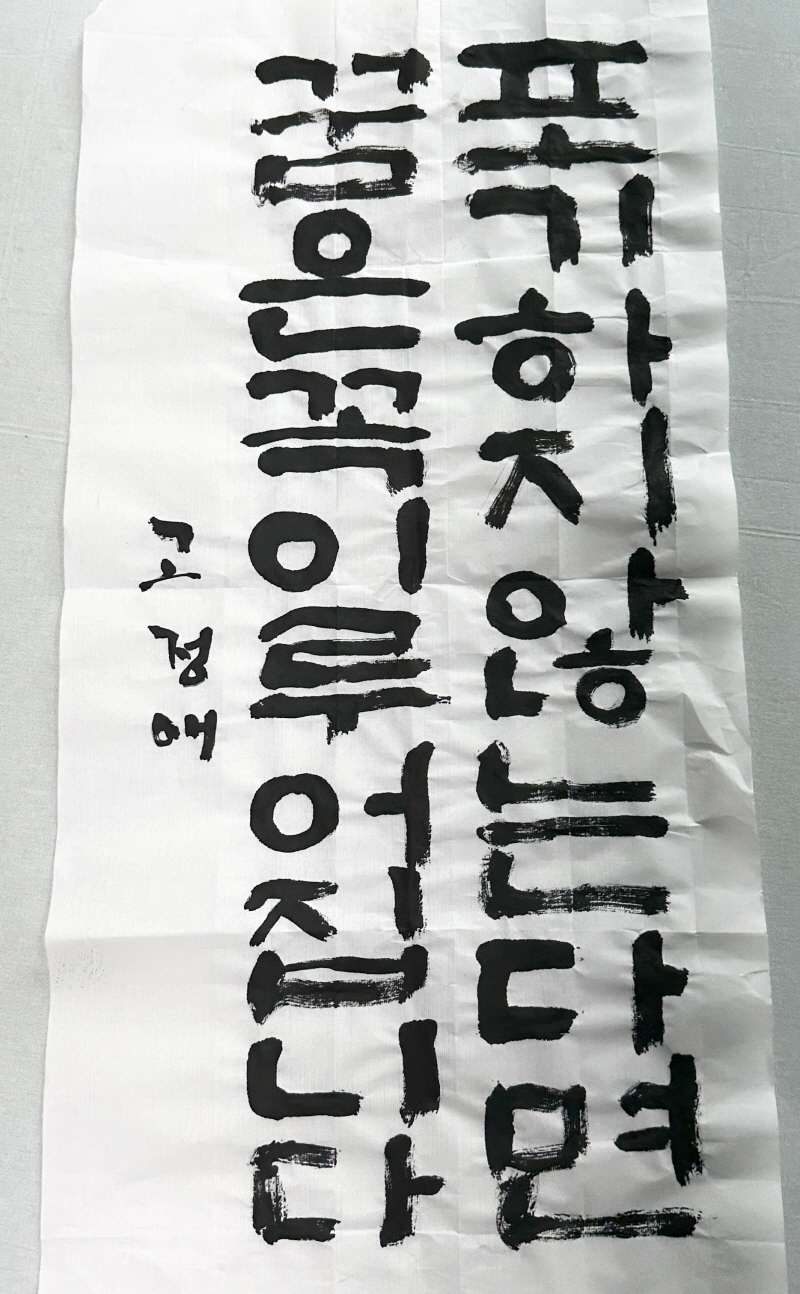 포기하지 않는다면
꿈은 꼭 이루어집니다
고정애